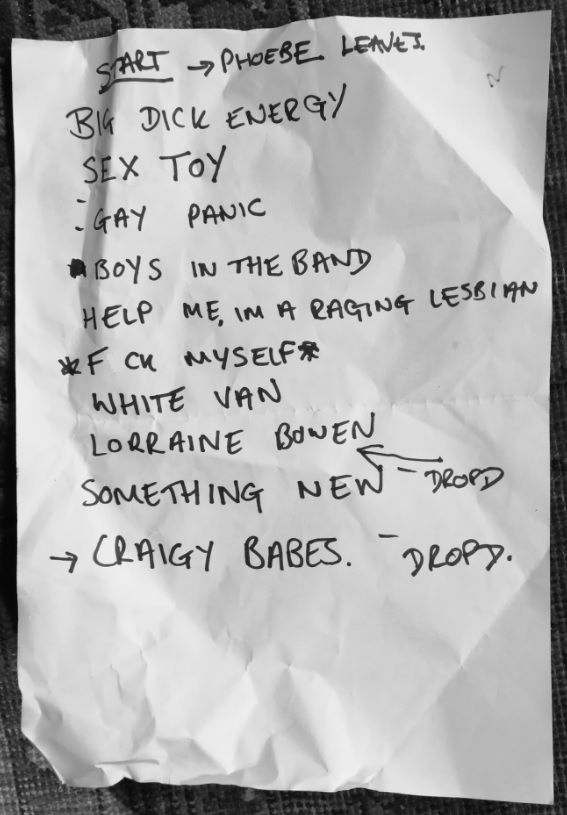 START → PHOEBE LEAVES.
N
BIG DICK ENERGY
SEX TOY
: GAY PANIC
BOYS IN THE BAND
HELP ME, IM A RAGING LESBIAN
*F CK MYSELF*
WHITE VAN
LORRAINE BOWEN
SOMETHING NEW - DROPD
→ CRAIGY BABES. - DROPD.